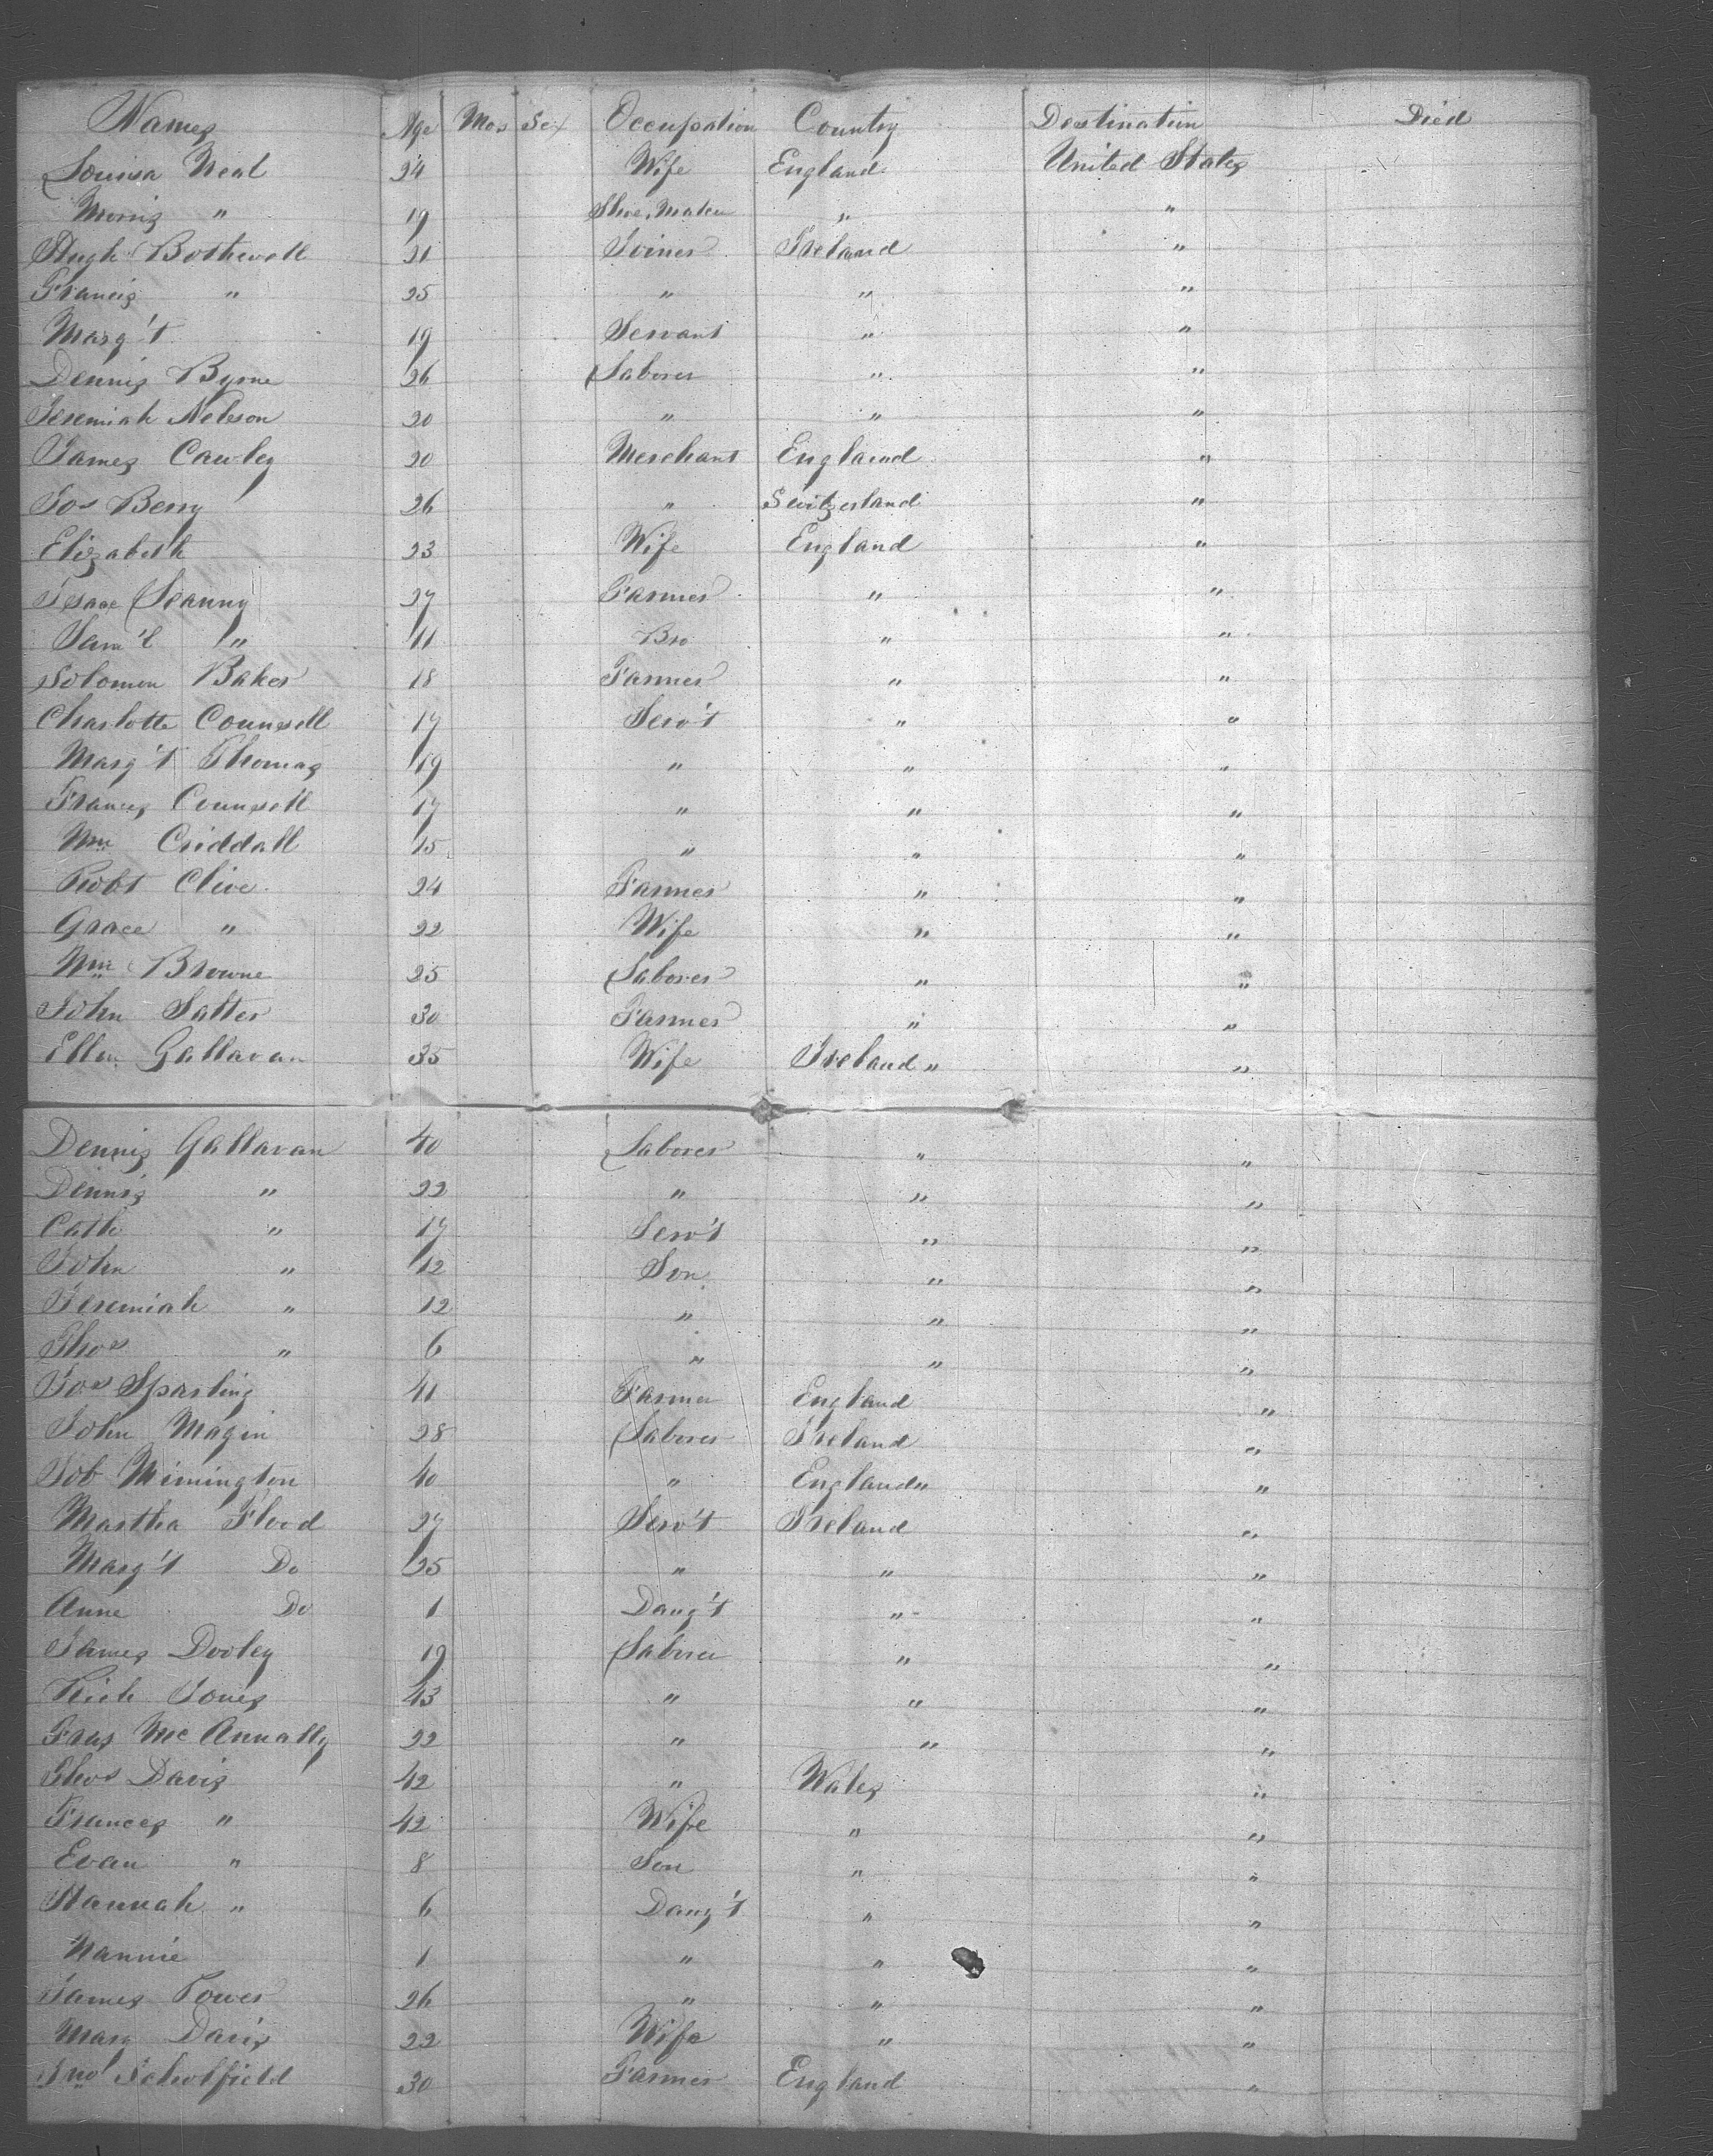 Names Age Mos Sex Occupation Country Destination Died
Louisa Neal 24 Wife England United States
Morris " 19 Shoe Maker " "
Hugh Bothwell 21 Joiner Ireland "
Francis " 25 " " "
Marg't 19 Servant " "
Dennis Byrne 26 Laborer " "
Jeremiah Nelson 20 " " "
James Cawley 20 Merchant England "
Jos Berry 26 " Switzerland "
Elizabeth 23 Wife England "
Isaac Leanny 27 Farmer " "
Sam'l " 11 Bro " "
Solomon Baker 18 Farmer " "
Charlotte Counsell 17 Serv't " "
Marg't Thomas 19 " " "
Frances Counsell 17 " " "
Wm Criddall 15 " " "
Robt Clive 24 Farmer " "
Grace " 22 Wife " "
Wm Browne 25 Laborer " "
John Salter 30 Farmer " "
Ellen Gallavan 35 Wife Ireland " "
Dennis Gallavan 40 Laborer " "
Dennis " 22 " " "
Cath " 17 Serv't " "
John " 12 Son " "
Jeremiah " 12 " " "
Thos " 6 " " "
Jos Sparling 41 Farmer England "
John Magin 28 Laborer Ireland "
Job Mimington 40 " England " "
Martha Flood 27 Serv't Ireland "
Marg't Do 25 " " "
Anne Do 1 Daug't " "
James Dooley 19 Laborer " "
Rich Jones 43 " " "
Fras McAnnally 22 " " "
Thos Davis 42 " Wales "
Frances " 42 Wife " "
Evan " 8 Son " "
Hannah " 6 Daug't " "
Nannie 1 " " "
James Power 26 " " "
Mary Davis 22 Wife " "
Jno Scholfield 30 Farmer England "